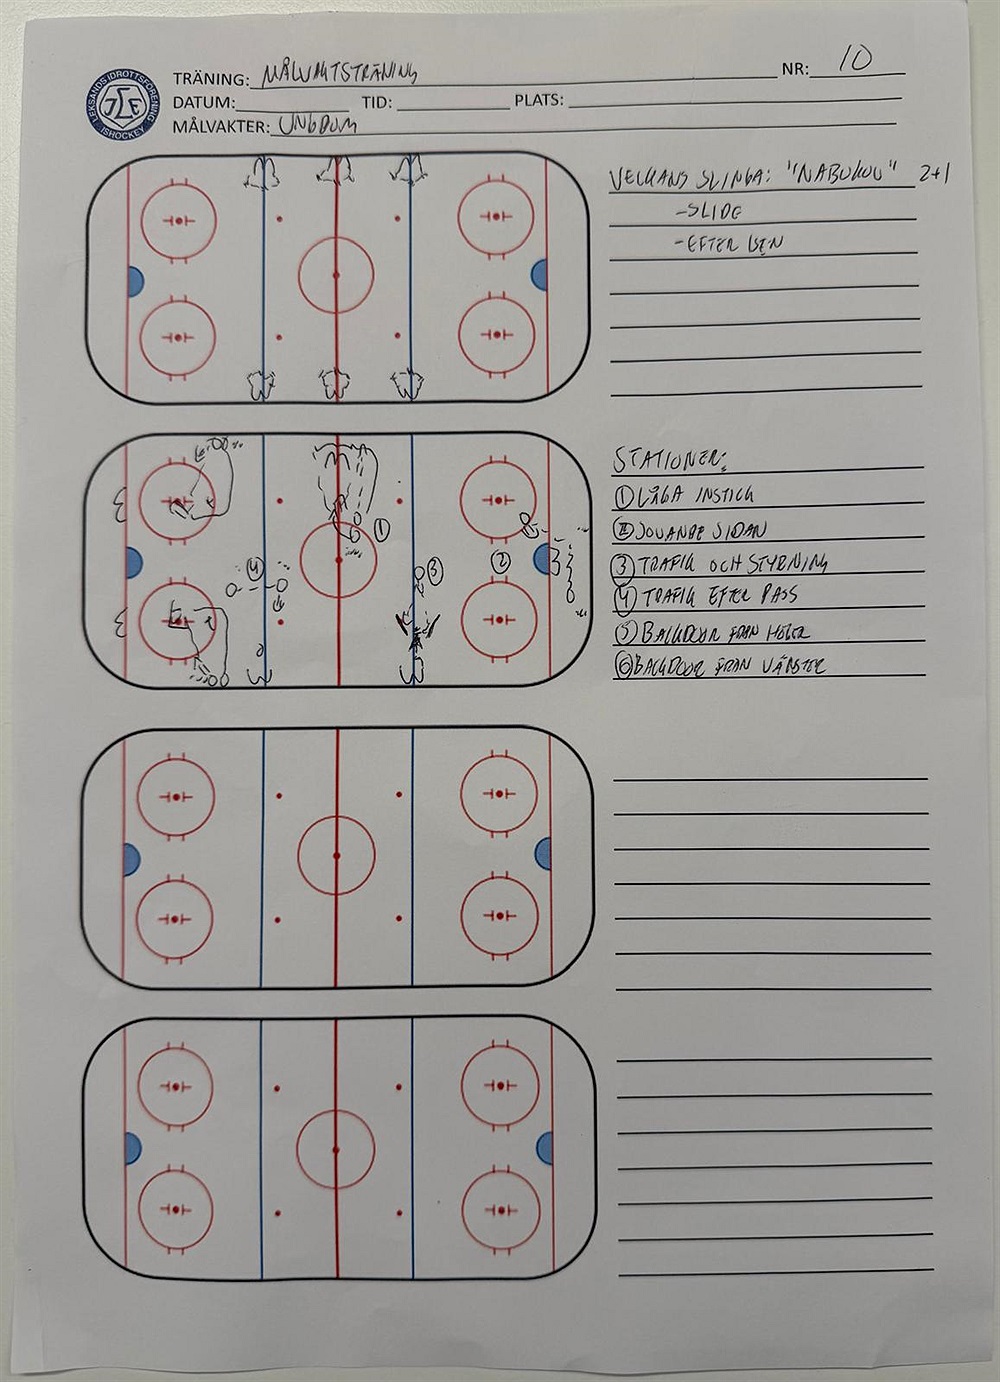 LEKSANDS IDROTTSFÖRENING
ISHOCKEY
TRÄNING: MÅLVAKTSTRÄNING NR: 10
DATUM: TID: PLATS:
MÅLVAKTER: UNGDOM
VECKANS SLINGA: "NABOKOV" 2+1
-SLIDE
-EFTER ISEN
STATIONER:
① LÅGA INSTICK
② SIDAN
③ TRAFIK OCH STYRNING
④ TRAFIK EFTER PASS
⑤ BACKDOOR FRÅN HÖGER
⑥ BACKDOOR FRÅN VÄNSTER
①
②
③
④